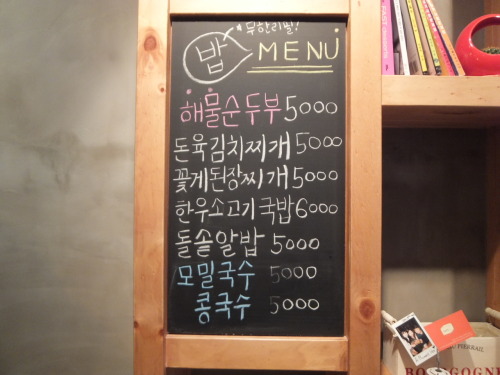 무한리필!
밥 MENU
해물순두부 5000
돈육김치찌개 5000
꽃게된장찌개 5000
한우소고기국밥 6000
돌솥알밥 5000
모밀국수 5000
콩국수 5000